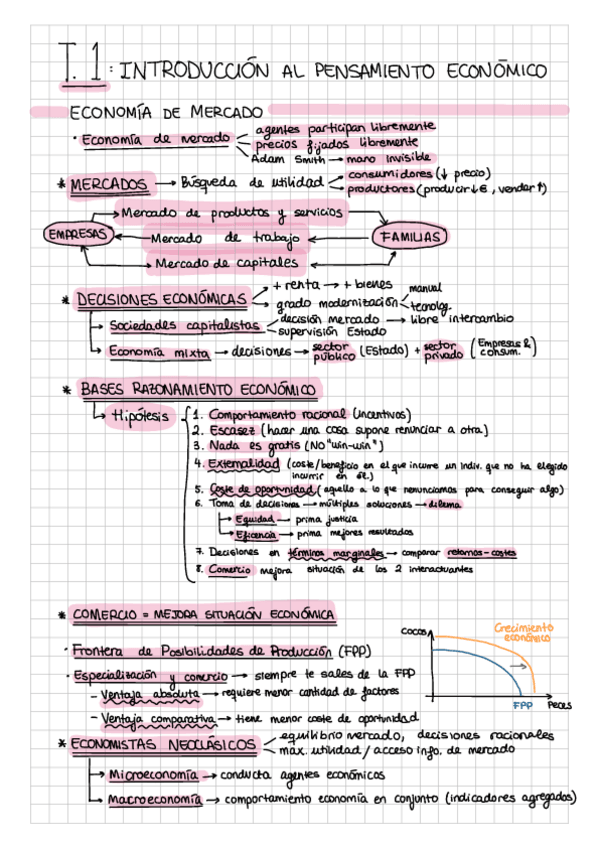 T. 1: INTRODUCCIÓN AL PENSAMIENTO ECONÓMICO
ECONOMÍA DE MERCADO
· Economía de mercado
agentes participan libremente
precios fijados libremente
Adam Smith → mano invisible
* MERCADOS → Búsqueda de utilidad
consumidores (↓ precio)
productores (producir↓€, vender↑)
Mercado de productos y servicios
EMPRESAS
Mercado de trabajo
FAMILIAS
Mercado de capitales
* DECISIONES ECONÓMICAS
+ renta → + bienes
grado modernización
manual
tecnolog.
↳ Sociedades capitalistas
decisión mercado → libre intercambio
supervisión Estado
↳ Economía mixta → decisiones → sector público (Estado) + sector privado (Empresas & consum.)
* BASES RAZONAMIENTO ECONÓMICO
↳ Hipótesis
1. Comportamiento racional (incentivos)
2. Escasez (hacer una cosa supone renunciar a otra)
3. Nada es gratis (NO "win-win")
4. Externalidad (coste/beneficio en el que incurre un indiv. que no ha elegido
incurrir en él.)
5. Coste de oportunidad (aquello a lo que renunciamos para conseguir algo)
6. Toma de decisiones → múltiples soluciones → dilema
↳ Equidad → prima justicia
↳ Eficencia → prima mejores resultados
7. Decisiones en términos marginales → comparar retornos-costes
8. Comercio mejora situación de los 2 interactuantes
* COMERCIO = MEJORA SITUACIÓN ECONÓMICA
· Frontera de Posibilidades de Producción (FPP)
· Especialización y comercio → siempre te sales de la FPP
- Ventaja absoluta → requiere menor cantidad de factores
- Ventaja comparativa → tiene menor coste de oportunidad
cocos
Crecimiento
económico
FPP
Peces
* ECONOMISTAS NEOCLÁSICOS
equilibrio mercado, decisiones racionales
max. utilidad / acceso info. de mercado
↳ Microeconomía → conducta agentes económicos
↳ Macroeconomía → comportamiento economía en conjunto (indicadores agregados)